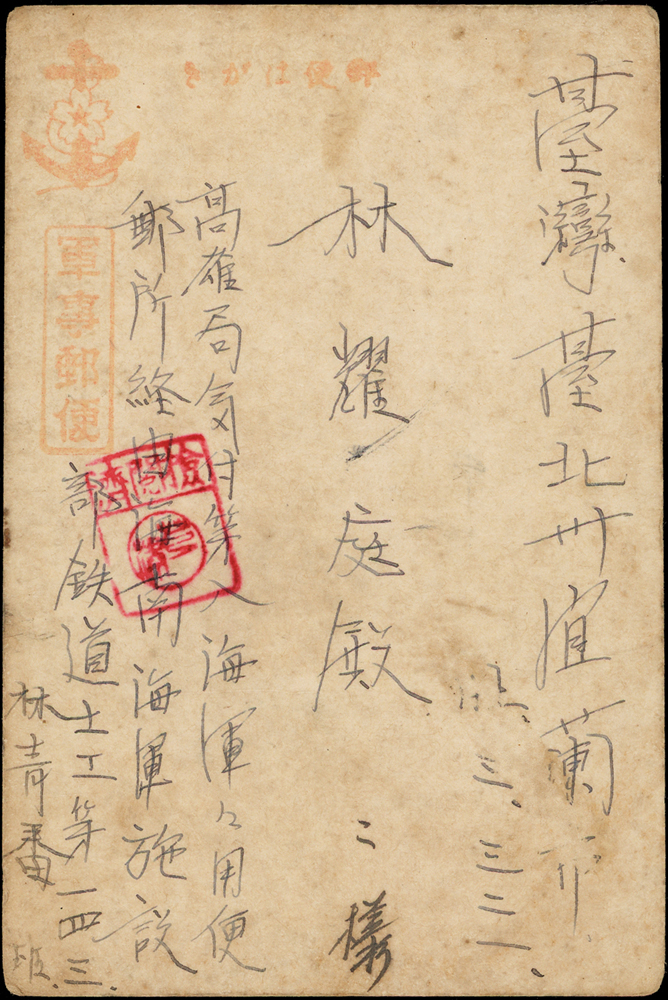 郵便はがき
臺灣臺北州宜蘭市
三、三三一、
林耀庭殿
様
高雄局気付第八海軍々用便
郵所経由海南海軍施設
部鉄道土工第一四三班
林青番
軍事郵便
検閲済